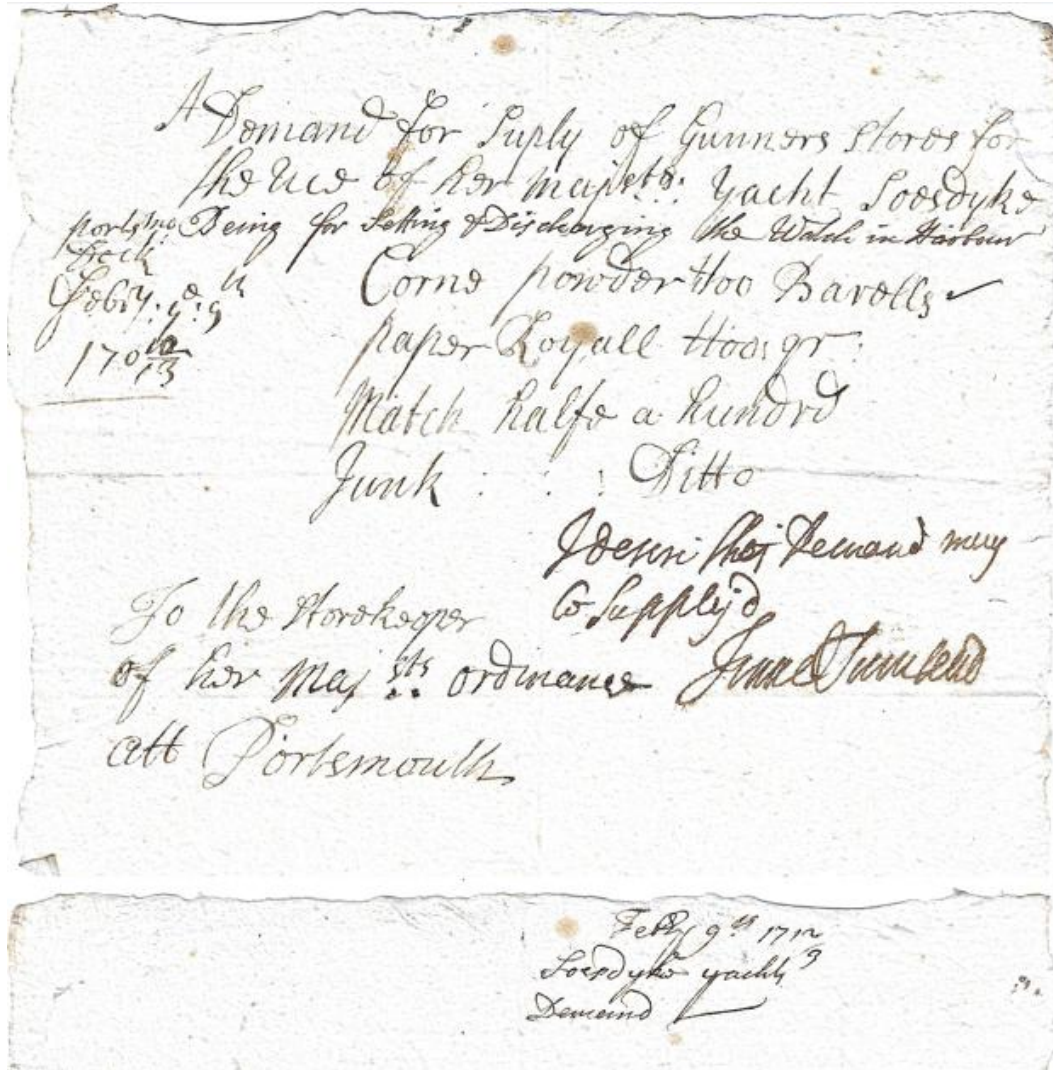 A Demand for Suply of Gunners Stores for
the Uce of her Majets: Yacht Soesdyke
Being for Setting & Discharging the Watch in Harbour
portsmo
Febry: ye: 9th
17012/13
Corne powder Hoo Barells
paper Royall Hoo: qr:
Match halfe a hundrd
Junk : : Ditto
I desire this Demand may
be Supply'd
Isaac Townsend
To the Storekeeper
of her Maj:sts ordinance
att Portsmouth
Febry 9th 1712/3
Soesdyke yachts
Demand